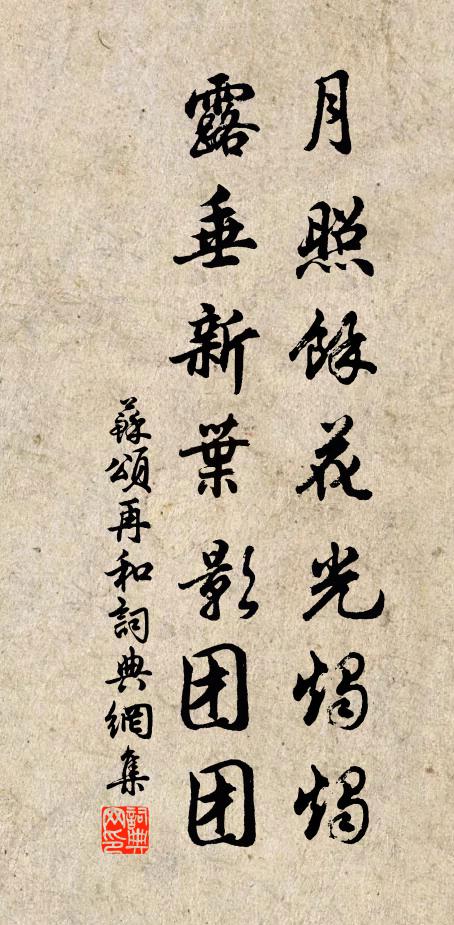 月照餘花光燭燭
露垂新葉影团团
蘇頌再和詞典網集
詞典网印